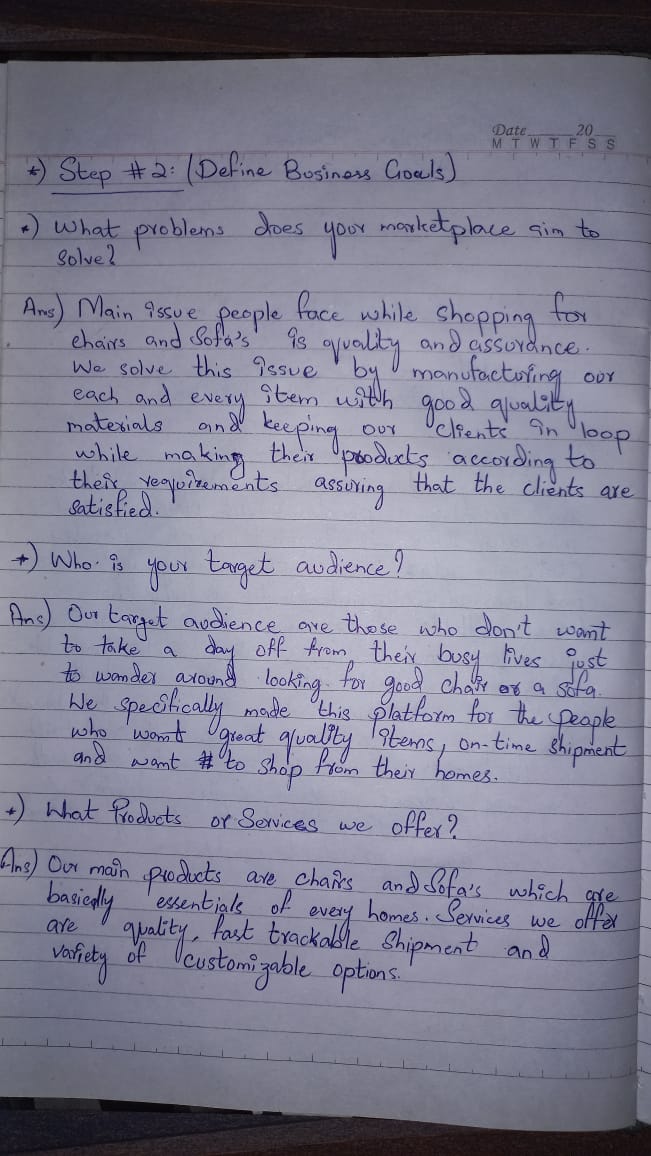 Date 20
M T W T F S S
*) Step #2: (Define Business Goals)
*) What problems does your marketplace aim to
solve?
Ans) Main issue people face while shopping for
chairs and Sofa's is quality and assurance.
We solve this issue by manufacturing our
each and every item with good quality
materials and keeping our clients in loop
while making their products according to
their requirements assuring that the clients are
satisfied.
*) Who is your target audience?
Ans) Our target audience are those who don't want
to take a day off from their busy lives just
to wander around looking for good chair or a sofa.
We specifically made this platform for the people
who want great quality items, on-time shipment
and want to shop from their homes.
*) What Products or Services we offer?
Ans) Our main products are chairs and Sofa's which are
basically essentials of every homes. Services we offer
are quality, fast trackable Shipment and
variety of customizable options.